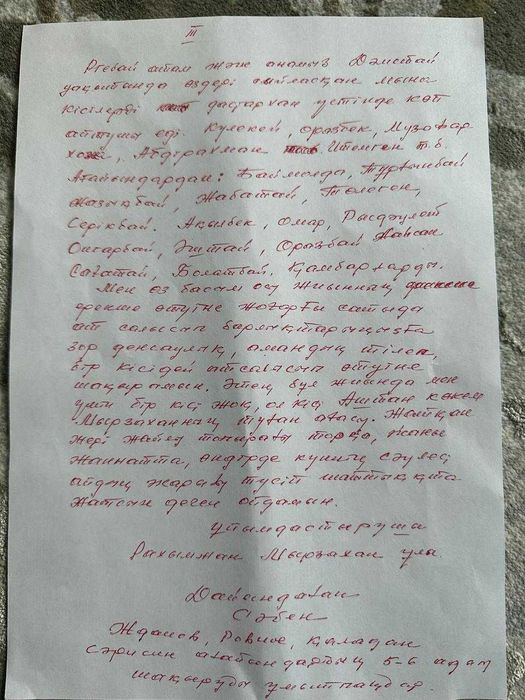 III
Ргевай атам және анамыз Дәметай
уақытында өздері сыйласқан мына
кісілерді дастархан үстінде көп
айтушы еді. Кулекей, Оразбек, Музафар
хожа, Абдірахман Итемген т.б.
Ағайындардан: Баймолда, Тұрғынбай
Жазықбай, Жабатай, Төлеген,
Серікбай. Ақылбек, Омар, Рысдәулет
Оңғарбай, Әштай, Оразбай Хапсан
Сағатай, Болатбай, Қамбарларды.
Мен өз басым осы жиынның
ерекше өтуіне жоғарғы сатыда
ат салысып барлықтарыңызға
зор денсаулық, амандық тілеп,
бір кісідей атсалысып өтуіне
шақырамын. Әттең бұл жиында мен
үшін бір кісі жоқ, ол кісі Аштан көкем
Мырзаханның туған ағасы. Жатқан
жері жайлы топырағы торқа, жаны
жаннатта, өңдірде күннің сәулесі
айдың жарығы түсіп шаттықта
жатсын деген ойдамын.
Ұйымдастырушы
Рахымжан Мырзахан ұлы.
Дайындаған
Сәбен
Жданов, Ровное, қаладан
Сәрисин ағабындардың 5-6 адам
шақыруды ұмытпаңдар